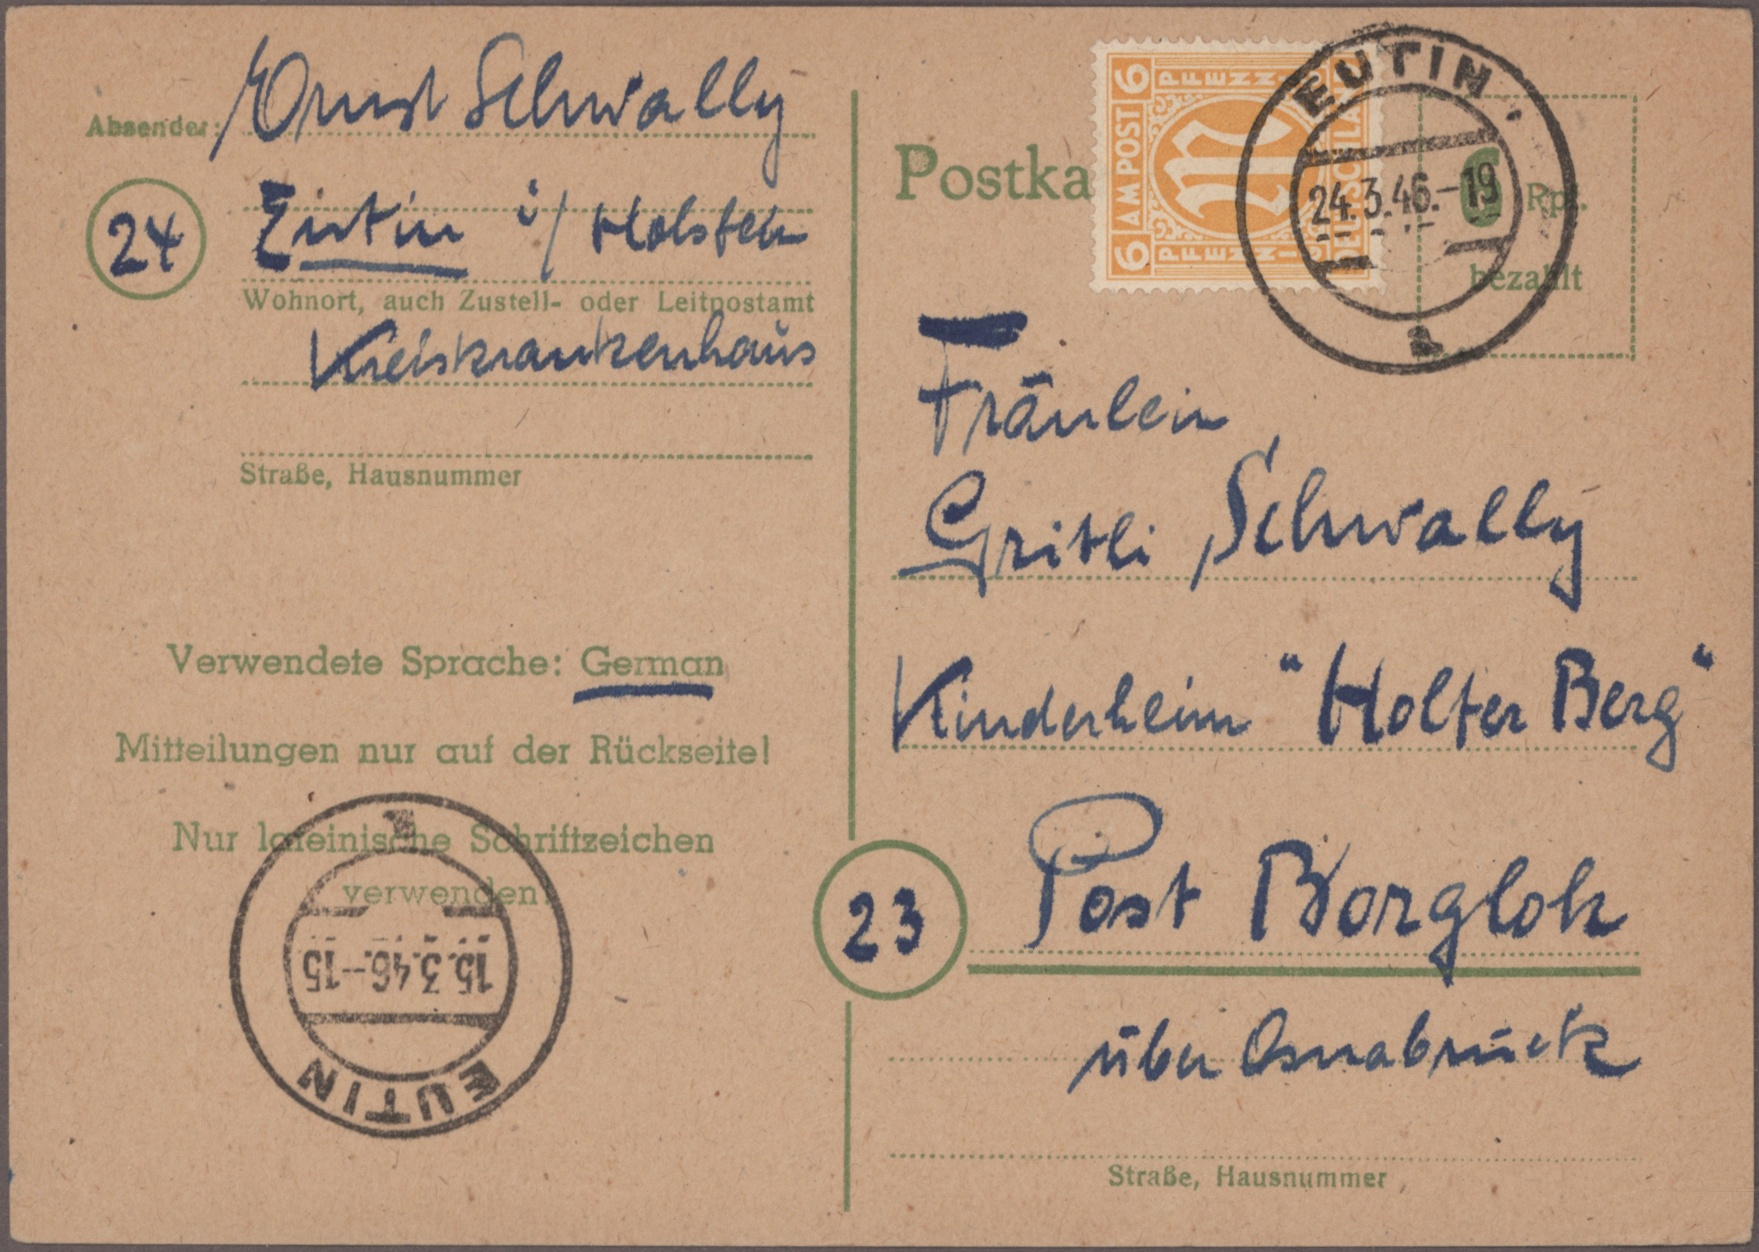 Absender: Ernst Schwally
24 Eutin i/ Holstein
Wohnort, auch Zustell- oder Leitpostamt
Kreiskrankenhaus
Straße, Hausnummer
Verwendete Sprache: German
Mitteilungen nur auf der Rückseite!
Nur lateinische Schriftzeichen
verwenden!
a
15.3.46.-15
EUTIN
Postka
6 PFENNI 6
AM POST
M
DEUTSCHLA
6 PFENNI
EUTIN
24.3.46.-19
a
6 Rpf.
bezahlt
Fräulein
Gritli Schwally
Kinderheim "Holter Berg"
23 Post Borgloh
über Osnabrück
Straße, Hausnummer